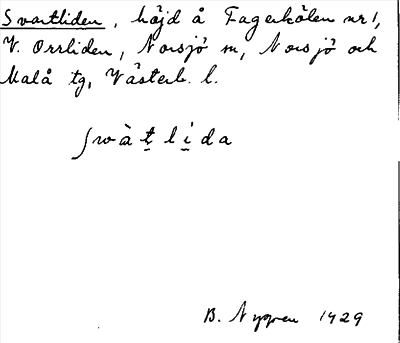 Svartliden, höjd å Fagerkölen nr 1,
V. Orrliden, Norsjö m, Norsjö och
Malå tg, Västerb. l.
ʃwàt̲lí̲da
B. Nygren 1929